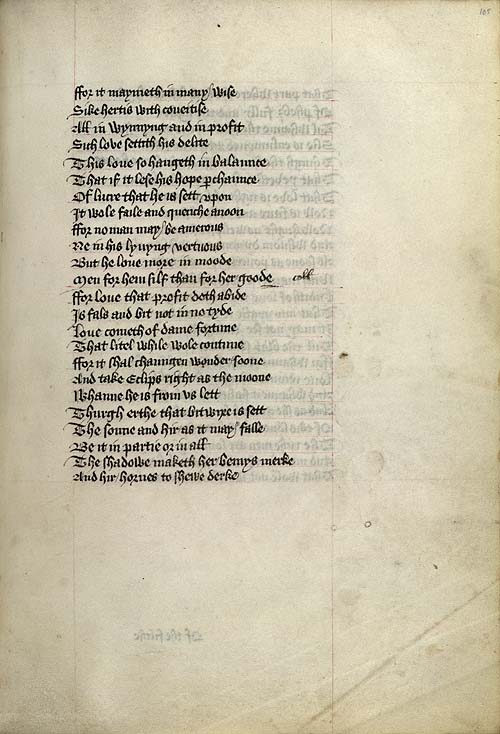 105
ffor it maymeth in many wise
Sike hertis with coueitise
All in wynnyng and in profit
Sich loue settith his delite
This loue so hangeth in balaunce
That if it lese his hope ꝑchaunce
Of lucre that he is sett vpon
It wole faile and quenche anoon
ffor no man may be amerous
Ne in his lyuyng vertuous
But he loue more in moode
Men for hem silf than for her goode
ffor loue that profit doth abide
Is fals and bit not in no tyde
Loue cometh of dame fortune
That litel while wole contune
ffor it shal chaungen wonder soone
And take Eclips right as the moone
Whanne he is from vs lett
Thurgh erthe that bitwixe is sett
The sonne and hir as it may falle
Be it in partie or in all
The shadowe maketh her bemys merke
And hir hornes to shewe derke